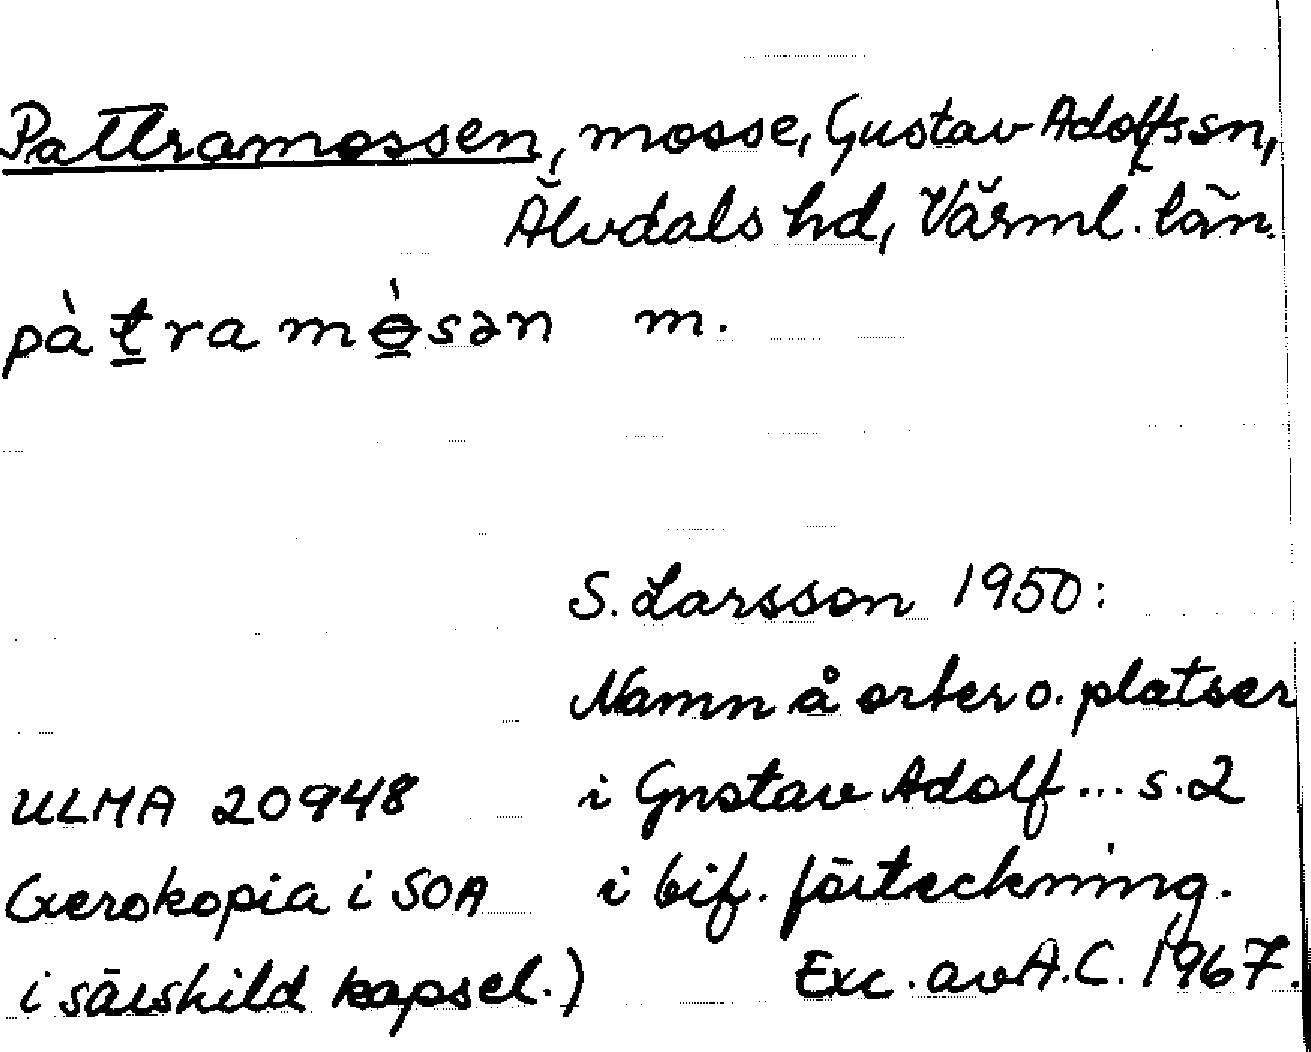 Pattramossen, mosse, Gustav Adolfs sn,
Älvdals hd, Värml. län.
pàt̲ramò̲sən m.
S. Larsson 1950:
Namn å orter o. platser
ULMA 20948 i Gustav Adolf... s.2
(xerokopia i SOA i bif. förteckning.
i särskild kapsel.) Exc. av A.C. 1967.